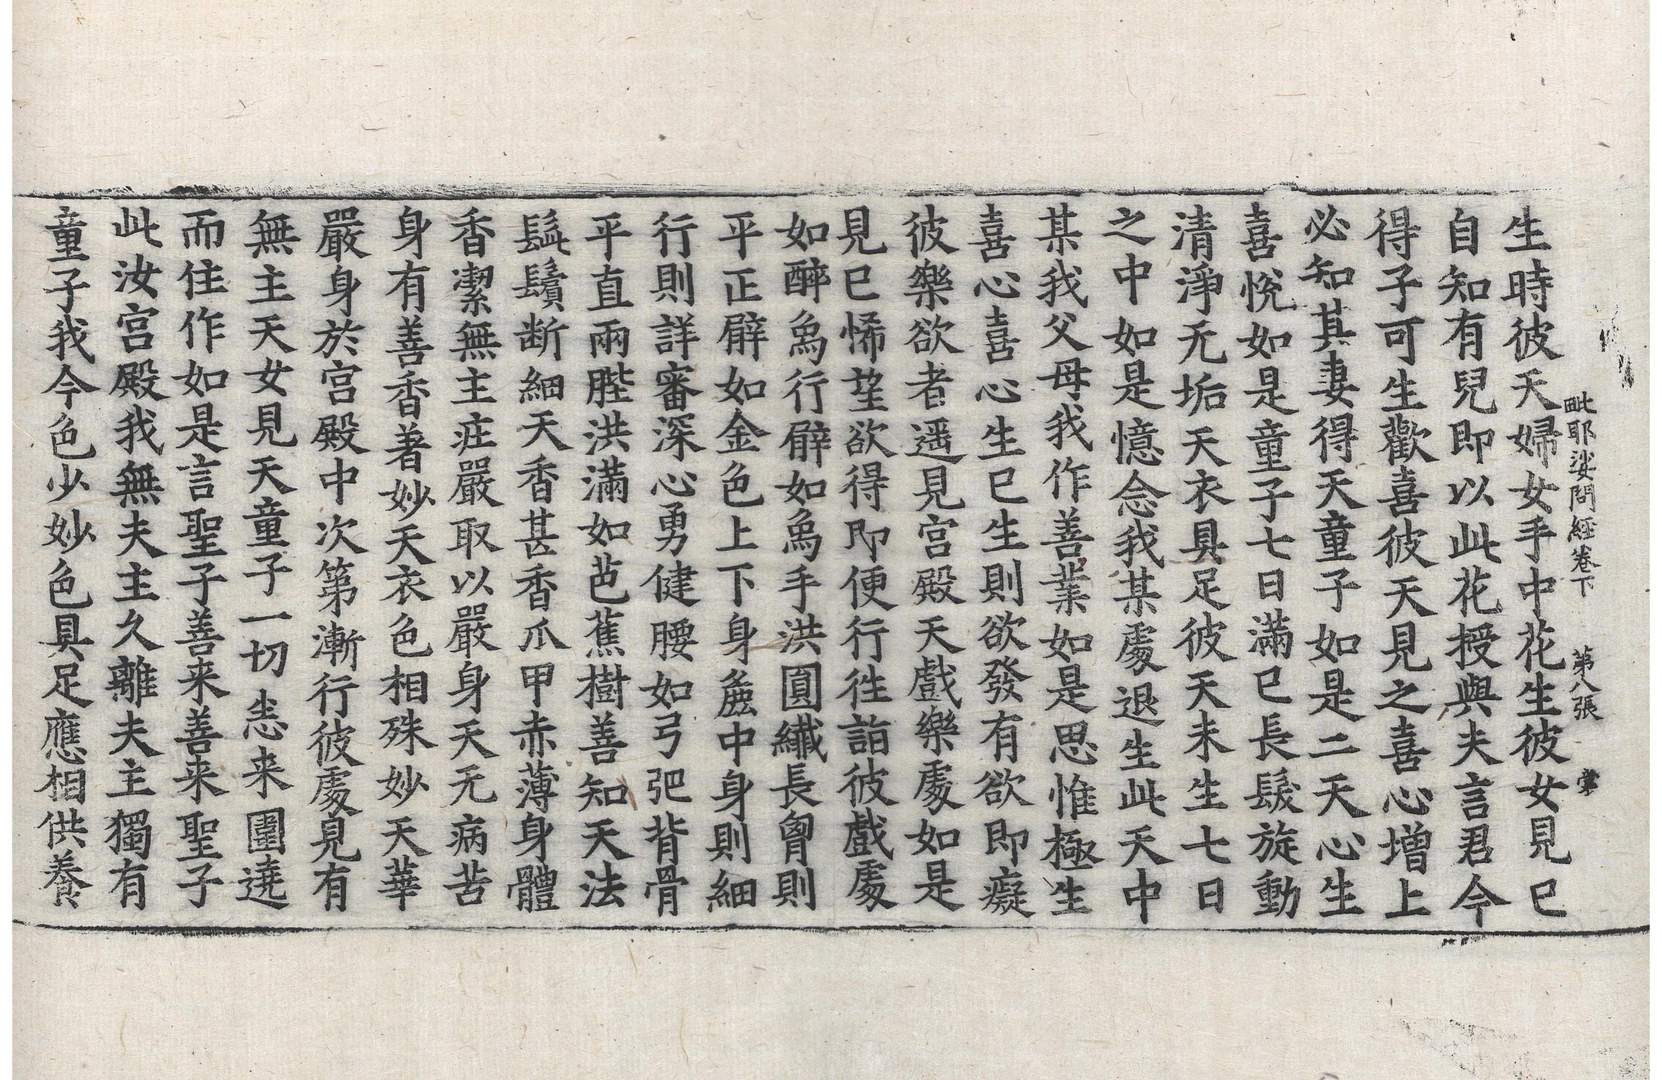 毗耶娑問經卷下　第八張　常
生時彼天婦女手中花生彼女見已
自知有兒即以此花授與夫言君今
得子可生歡喜彼天見之喜心增上
必知其妻得天童子如是二天心生
喜悅如是童子七日滿已長髮旋動
清淨无垢天衣具足彼天未生七日
之中如是憶念我某處退生此天中
某我父母我作善業如是思惟極生
喜心喜心生已生則欲發有欲即癡
彼樂欲者遥見宮殿天戲樂處如是
見已悕望欲得即便行往詣彼戲處
如醉象行臂如象手洪圓纖長𦙄則
平正臂如金色上下身麁中身則細
行則詳審深心勇健腰如弓弝背骨
平直兩䏶洪滿如芭蕉樹善知天法
髭鬚断細天香甚香爪甲赤薄身體
香潔無主庄嚴取以嚴身天无病苦
身有善香著妙天衣色相殊妙天華
嚴身於宮殿中次第漸行彼處見有
無主天女見天童子一切悉来圍遶
而住作如是言聖子善来善来聖子
此汝宮殿我無夫主久離夫主獨有
童子我今色少妙色具足應相供養